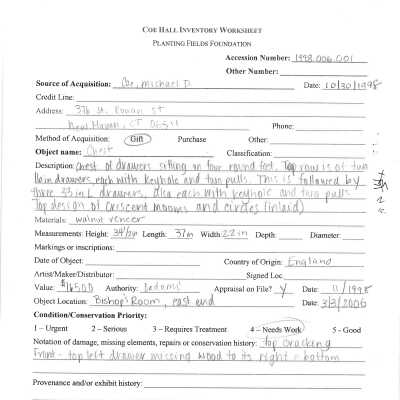 COE HALL INVENTORY WORKSHEET
PLANTING FIELDS FOUNDATION
Accession Number: 1998.006.001
Other Number:
Source of Acquisition: Coe, Michael D. Date: 10/30/1998
Credit Line:
Address: 376 St. Ronan St
New Haven, CT 06511 Phone:
Method of Acquisition: Gift Purchase Other:
Object name: Chest Classification:
Description: Chest of drawers sitting on four round feet. Top row is of two
in drawers, each with keyhole and two pulls. This is followed by
three 35 in L drawers, also each with keyhole and two pulls
Top design of crescent moones and circles (inlaid)
Materials: walnut veneer
Measurements: Height: 34 1/2 Length: 37 in Width: 22 in Depth: Diameter:
Markings or inscriptions:
Date of Object: Country of Origin: England
Artist/Maker/Distributor: Signed Loc
Value: $16500 Authority: Appraisal on File? Y Date: 11/1998
Object Location: Bishop's Room, east end Date: 3/3/2006
Condition/Conservation Priority:
1 – Urgent 2 – Serious 3 – Requires Treatment 4 – Needs Work 5 - Good
Notation of damage, missing elements, repairs or conservation history: top cracking
Front - top left drawer missing wood to its right + bottom
Provenance and/or exhibit history: